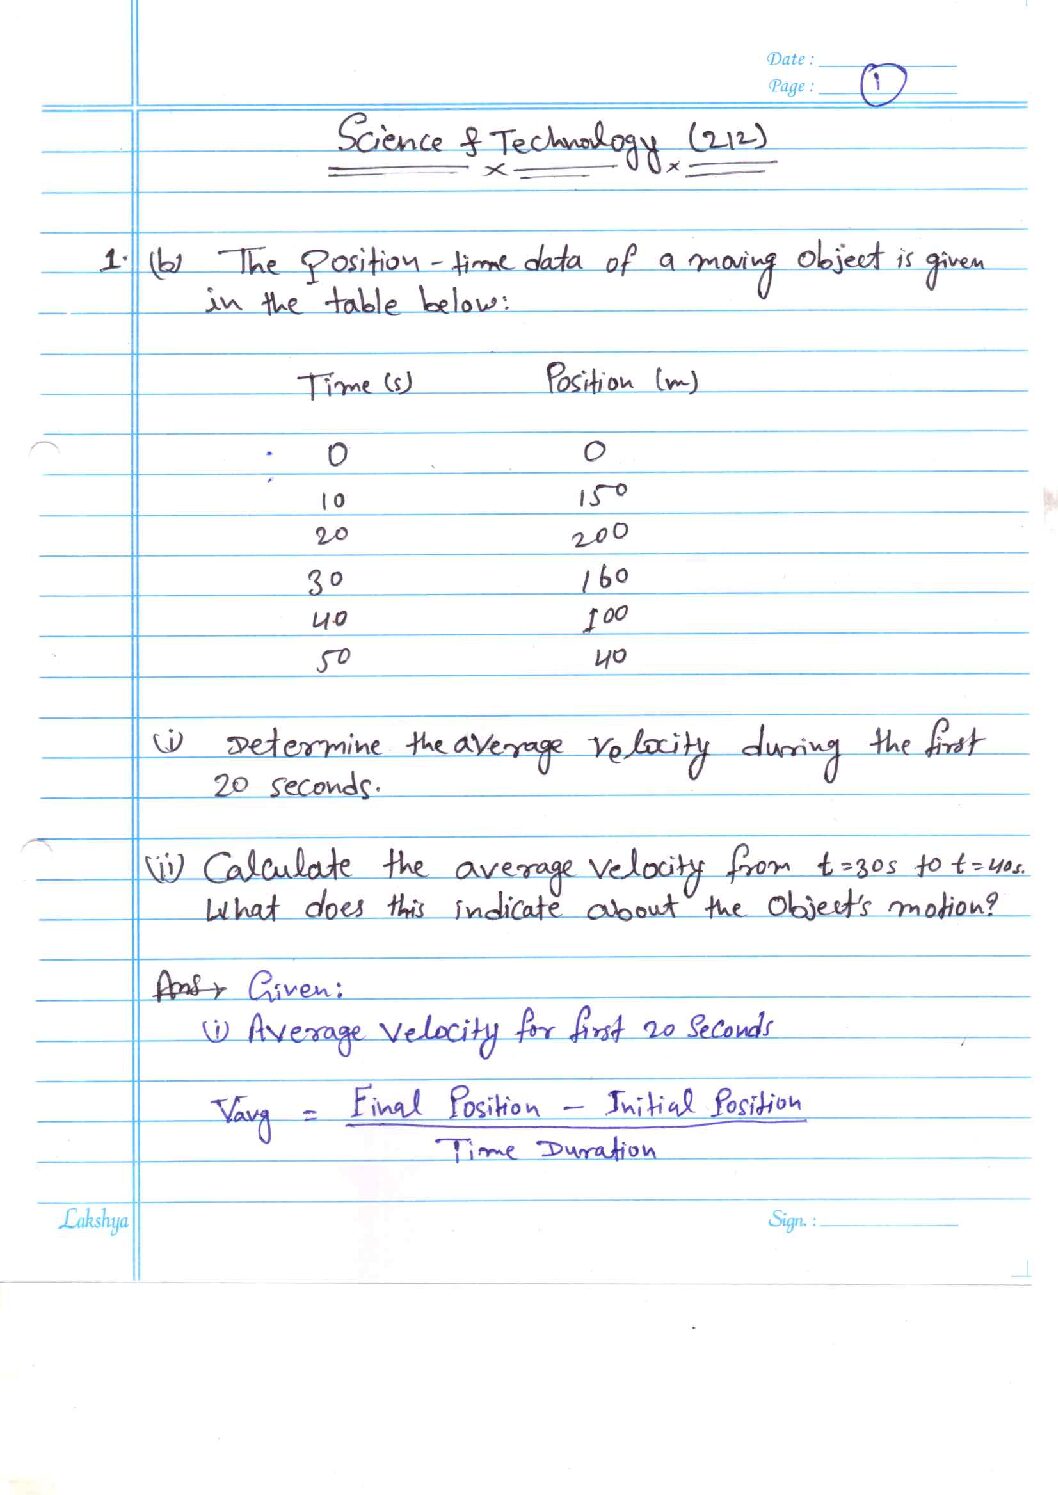 Date :
Page : 1
Science & Technology (212)
1. (b) The Position - time data of a moving object is given
in the table below:
Time (s) Position (m)
0 0
10 150
20 200
30 160
40 100
50 40
(i) Determine the average velocity during the first
20 seconds.
(ii) Calculate the average velocity from t=30s to t=40s.
What does this indicate about the Object's motion?
Ans→ Given:
(i) Average velocity for first 20 Seconds
Vavg = Final Position - Initial Position
Time Duration
Lakshya Sign. :